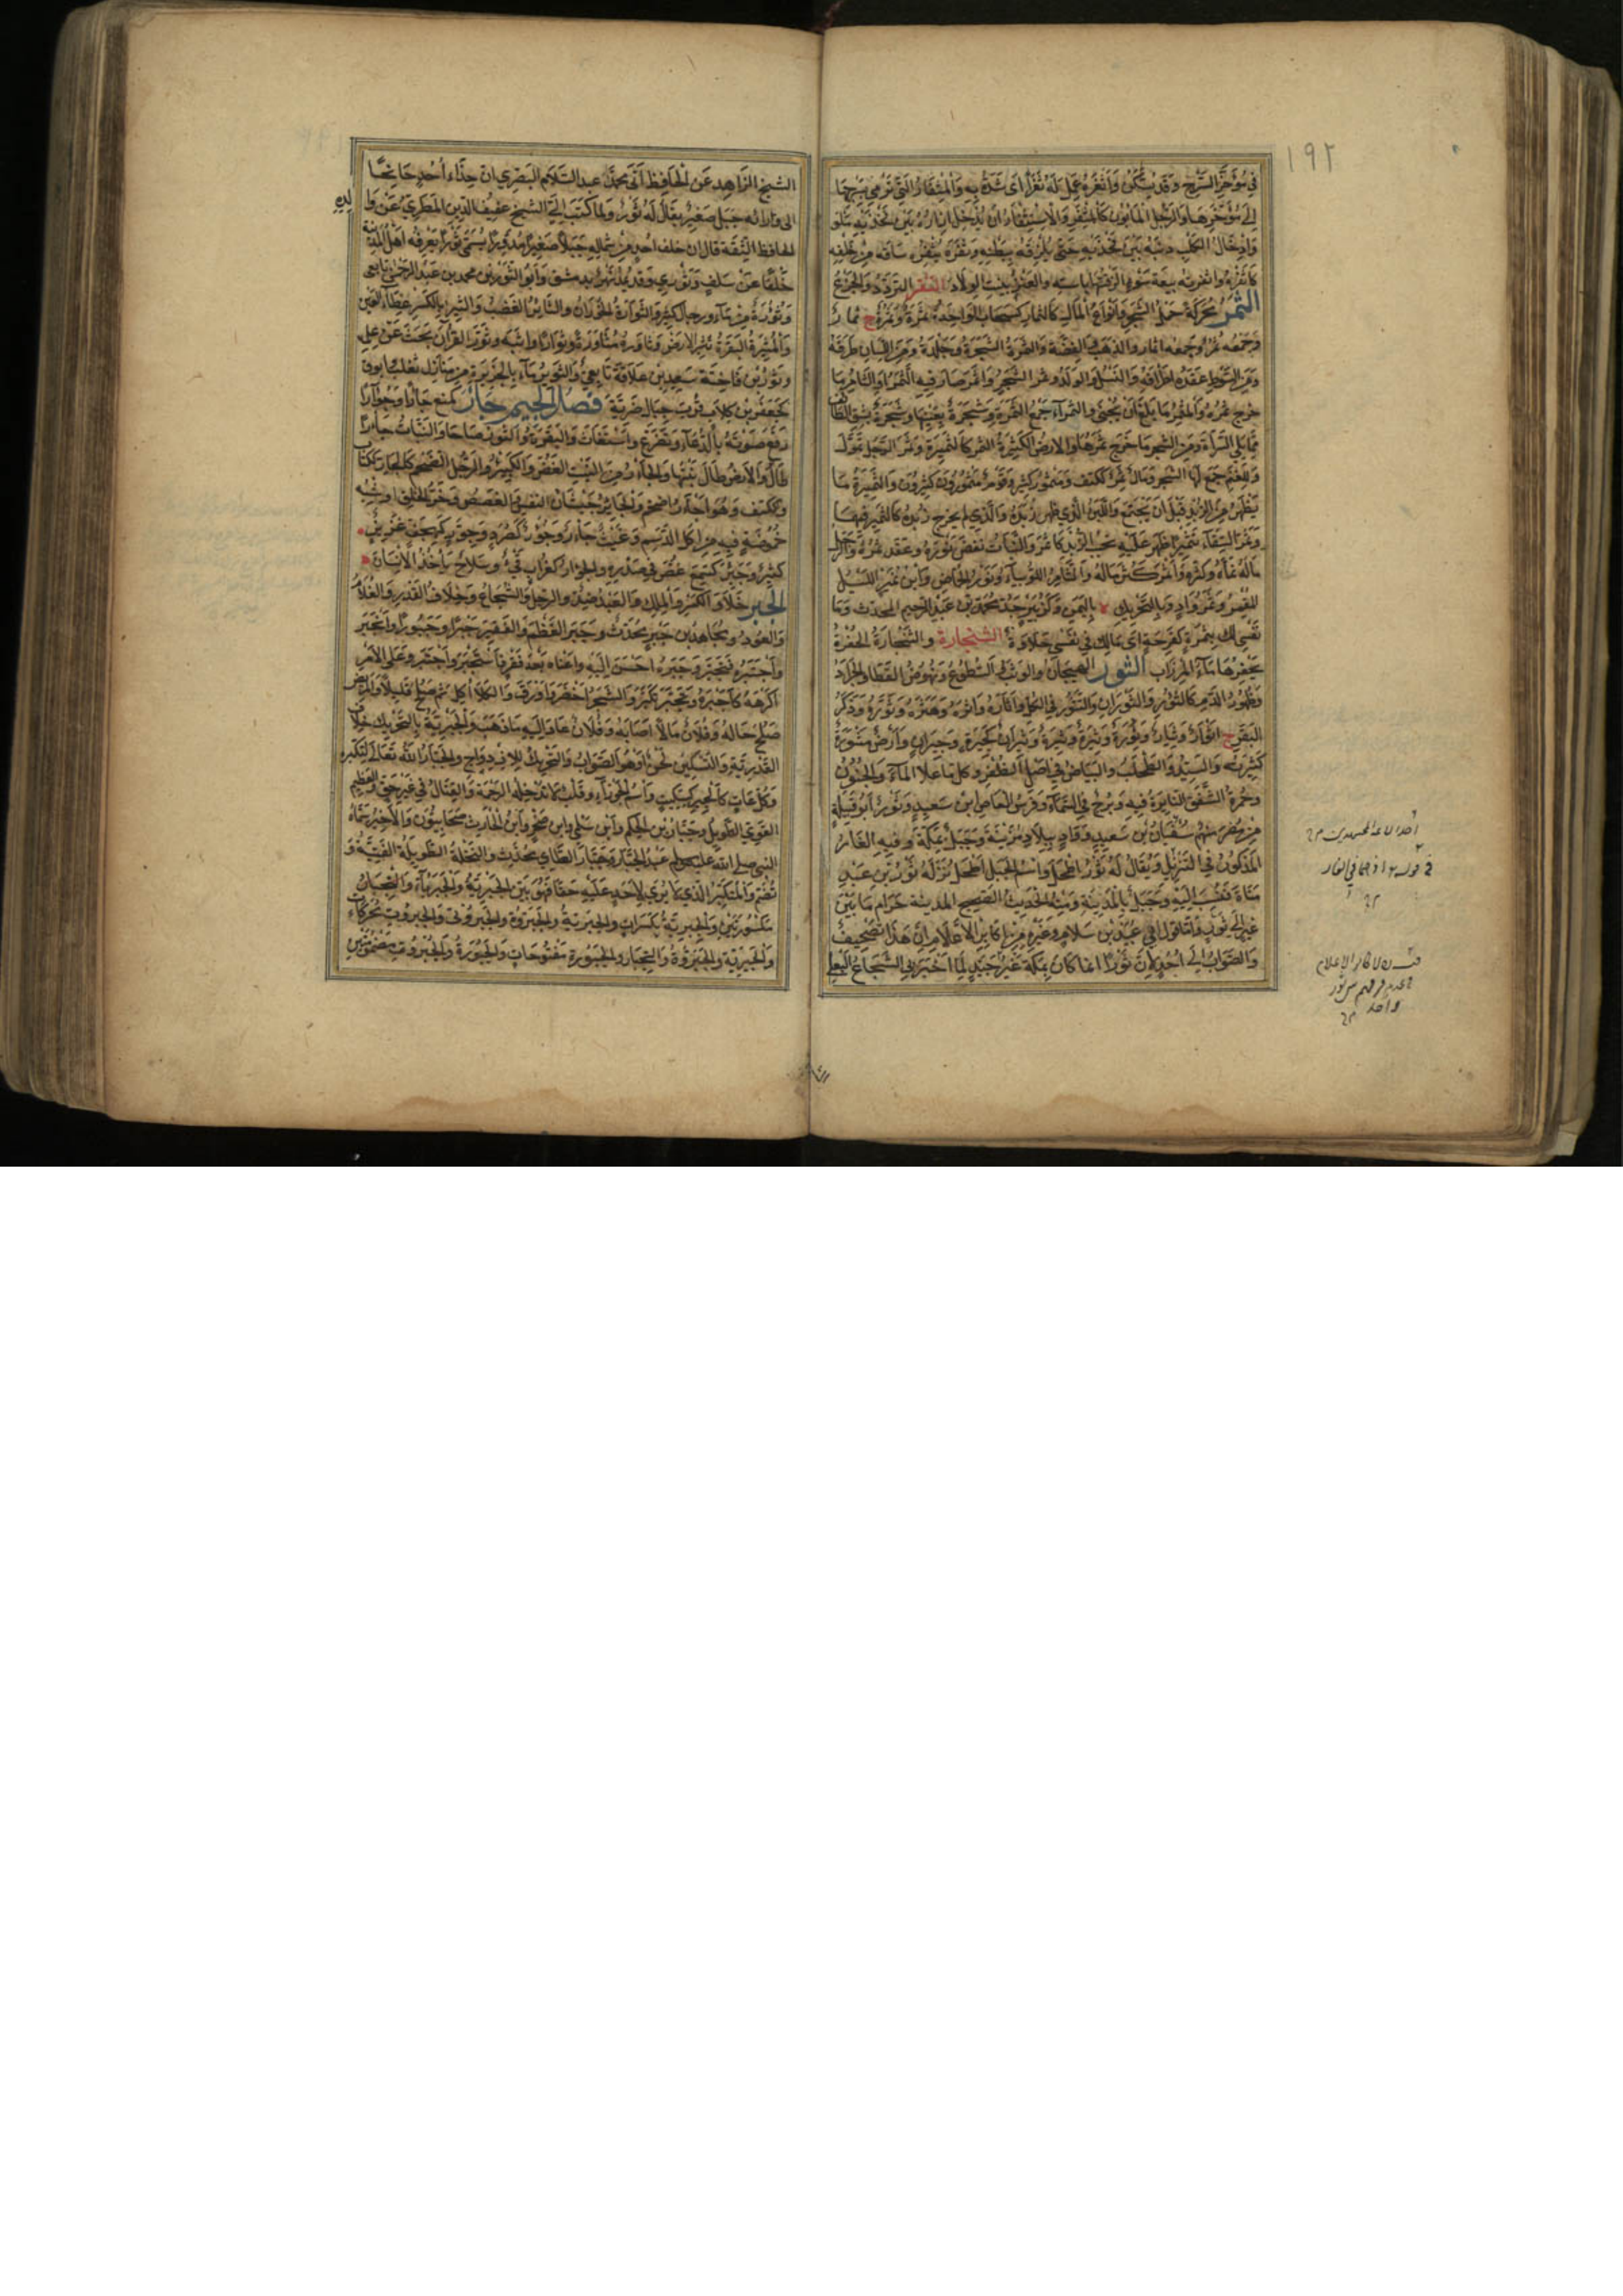 ١٩٢
في مُؤخَّر السَّرج وقد يُسكَّن وأثفره عمل له ثفرا اى شدّه به والمثفار التي ترمي بسرجها
الى مؤخرها والرجل المأبون كالمثفر والاستثفار ان يدخل ازاره بين فخذيه ملويا
وادخال الكلب ذنبه بين فخذيه حتى يلزقه ببطنه وثفره يثفره ساقه من خلفه
كاثفره واثفرته بيعة سوء الزقتها باسته والعنز بينت الولاد الثقر التردد والجزع
الثمر محركة حمل الشجر وانواع المال كالثمار كسحاب الواحدة ثمرة وثمرة ج ثمار
وجمعه ثمر وجمعه اثمار والذهب والفضة والثمرة الشجرة وجلدة ومن اللسان طرفه
ومن السوط عقدة اطرافه والنسل والولد وثمر الشجر واثمر صار فيه الثمر او الثامر ما
خرج ثمره والمثمر ما بلغ ان يجنى والثمراء جمع الثمرة وشجرة بعينها وشجرة بشق الطائف
مما يلي السراة ومن الشجر ما خرج ثمرها والارض الكثيرة الثمر كالثميرة وثمر الرجل تمول
وللغنم جمع لها الشجر ومال ثمر ككتف ومثمور كثير وقوم مثمورون كثيرون والثميرة ما
يظهر من الزبد قبل ان يجتمع واللبن الذي ظهر زبده والذي لم يخرج زبده كالثمير فيهما
وثمر السقاء تثميرا ظهر عليه تحبب الزبد كاثمر والنبات نفض نوره وعقد ثمره والرجل
ماله نماه وكثره واثمر كثر ماله والثامر اللوبياء ونور الحماض وابن ثمير الليل
المقمر وثمر واد وبالتحريك ة باليمن وكزبير جد محمد بن عبد الرحيم المحدث وما
نفسي لك بثمرة كفرحة اى مالك في نفسي حلاوة الثنجارة والثنجارة الحفرة
يحفرها ماء المرزاب الثور الهيجان والوثب والسطوع ونهوض القطا والجراد
وظهور الدم كالثؤور والثوران والتثور في الكل واثاره واثره وهثره وثوره وذكر
البقر ج اثوار وثيار وثورة وثيرة وثيرة وثيران كجيرة وجيران وارض مثورة
كثيرته والسيد والطحلب والبياض في اصل الظفر وكل ما علا الماء والجنون
وحمرة الشفق الثايرة فيه وبرج في السماء وفرس العاص ابن سعيد وثور ابو قبيلة
من مضر منهم سفيان بن سعيد وواد ببلاد مزينة وجبل بمكة وفيه الغار
المذكور في التنزيل ويقال له ثور اطحل واسم الجبل اطحل نزله ثور بن عبد
مناة فنسب اليه وجبل بالمدينة ومنه الحديث الصحيح المدينة حرام ما بين
عير الى ثور فاما قول ابي عبيد بن سلام وغيره من اكابر الاعلام ان هذا تصحيف
والصواب الى احد لان ثورا انما كان بمكة غير جيد لما اخبرني الشجاع البعلي
الشيخ الزاهد عن الحافظ ابي محمد عبد السلام البصري ان حذاء احد جانحا
الى ورائه جبل صغير يقال له ثور ولما كتب الي الشيخ عفيف الدين المطري عن والده
الحافظ الثقة قال ان خلف احد من شماليه جبلا صغيرا مدورا يسمى ثورا يعرفه اهل المدينة
خلفا عن سلف وثوري وقد يمد نهر بدمشق وابو الثورين محمد بن عبد الرحمن تابعي
وثورة من ماء ورجال كثير والثوارة الخوران والثائر الغضب والثير بالكسر غطاء العين
والمثيرة البقرة تثير الارض وثاوره مثاورة وثوارا واثبه وثور القرآن بحث عن علمه
وثور بن فاختة سعيد بن علاقة تابعي والثوير ماء بالجزيرة من منازل تغلب وابرق
لجعفر بن كلاب قرب جبال ضرية فصل الجيم جأر كمنع جأرا وجؤارا
رفع صوته بالدعاء وتضرع واستغاث والبقرة والثور صاحا والنبات جأرا
طال والارض طال نبتها والجأر من النبت الغض والكثير والرجل الضخم كالجأر ككتان
وككتف وهو اجأر منه اضخم والجائر جيشان النفس والغصص وحر الحلق او شبه
حموضة فيه من اكل الدسم وغيث جأر وجؤر كصرد وجور كهجف غزير
كثير وجئر كسمع غص في صدره والجؤار كغراب قيء وسلاح يأخذ الانسان
الجبر خلاف الكسر والملك والعبد ضد والرجل والشجاع وخلاف القدر والغلام
والعود ومجاهد بن جبر محدث وجبر العظم والفقير جبرا وجبورا وانجبر
واجتبره فتجبر وجبره احسن اليه واغناه بعد فقر فاستجبر واجتبر وعلى الامر
اكرهه كاجبره وتجبر تكبر والشجر اخضر واورق والكلأ اكل ثم صلح قليلا والمريض
صلح حاله وفلان مالا اصابه وفلان عاد اليه ما ذهب والجبرية بالتحريك خلاف
القدرية والتسكين لحن او هو الصواب والتحريك للازدواج والجبار الله تعالى لتكبره
وكل عات كالجبير كسكيت واسم الجوزاء وقلب لا تدخله الرحمة والقتال في غير حق والعظيم
القوي الطويل وجبار بن الحكم وابن سلمى وابن صخر وابن الحارث صحابيون والاخير سماه
النبي صلى الله عليه وسلم عبد الجبار وجبار الطائي محدث والنخلة الطويلة الفتية و
تضم والمتكبر الذي لا يرى لاحد عليه حقا فهو بين الجبرية والجبرياء
مكسورتين والجبرية بكسرات والجبرية والجبروة والجبروتى والجبروت محركات
والجبرية والجبروة والتجبار والجبورة مفتوحات والجبورة والجبروت مضمومتين